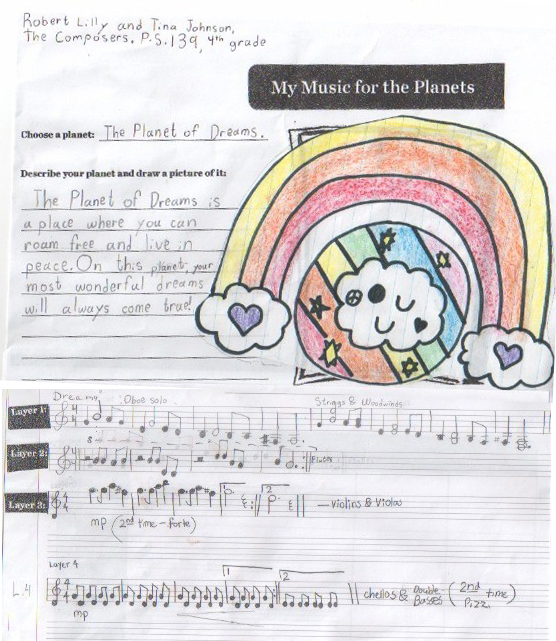 Robert Lilly and Tina Johnson,
The Composers. P.S.139, 4th grade
My Music for the Planets
Choose a planet: The Planet of Dreams.
Describe your planet and draw a picture of it:
The Planet of Dreams is
a place where you can
roam free and live in
peace. On this planet, your
most wonderful dreams
will always come true!
Dreamy Oboe solo Strings & Woodwinds
Layer 1:
Layer 2:
8
Flutes
Layer 3:
1. 2.
— Violins & Violas
mp (2nd time - forte)
Layer 4
1 2
L.4
chellos & Double Basses (2nd time Pizz.
mp